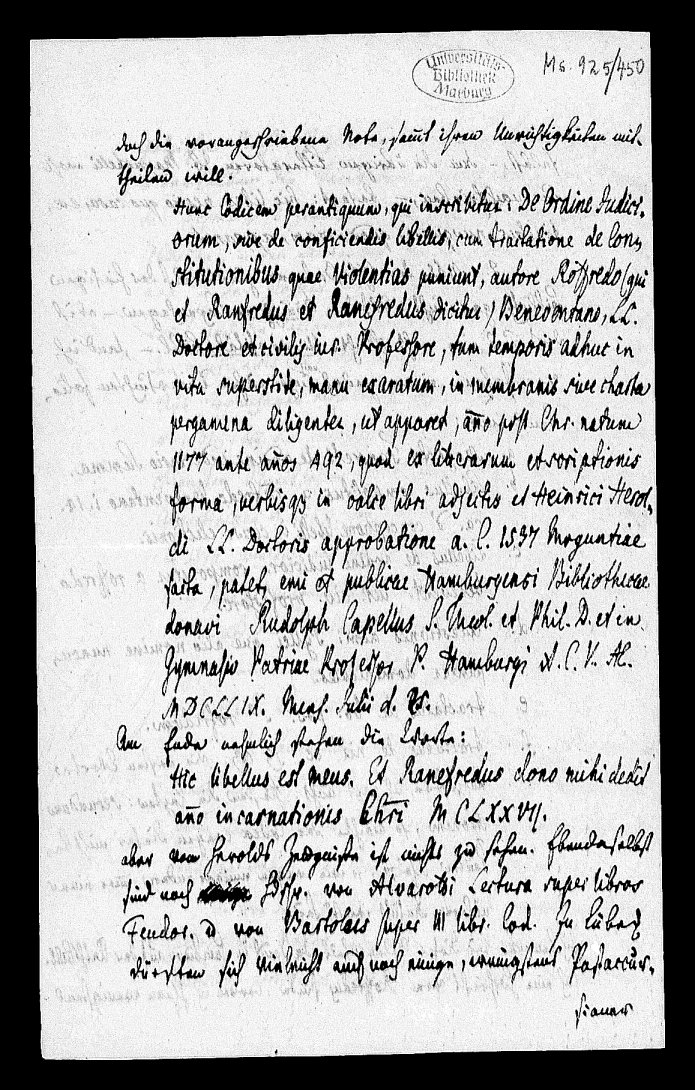 Universitäts-
Bibliothek
Marburg
Ms. 925/450
doch die vorangeschriebene Note, samt ihren Unrichtigkeiten mit-
theilen will:
Hunc Codicem perantiquum, qui inscribitur: De Ordine Judici-
orum, sive de conficiendis libellis, cum tractatione de Con-
stitutionibus quae Violentias puniunt, autore Roffredo (qui
et Ranfredus et Ranefredus dicitur) Beneventano, LL.
Doctore et civilis iur. Professore, tum temporis adhuc in
vita superstite, manu exaratum, in membranis sive charta
pergamena diligenter, ut apparet, año post Chr. natum
1177 ante años 492, quod ex literarum et scriptionis
forma, verbisqz in calce libri adjectis et Heinrici Herol-
di LL. Doctoris approbatione a. C. 1537 Moguntiae
facta, patet, emi et publicae Hamburgensi Bibliothecae
donavi Rudolph Capellus S. Theol. et Phil. D. et in
Gymnasio Patriae Professor P. Hamburgi A. C. V. Æ.
MDCLXIX. Mens. Julii d.
Am Ende nehmlich stehen die Worte:
Hic libellus est meus. Et Ranefredus dono mihi dedit
año incarnationis Chri MCLXXVII.
aber von Herolds Zeugniße ist nichts zu sehen. Ebendaselbst
sind noch Hdsr. von Alvaroti Lectura super libros
Feudor. u von Bartolus super III libr. Cod. In Lübeck
dürften sich vielleicht auch noch einige, wenigstens Postaccur-
sianer